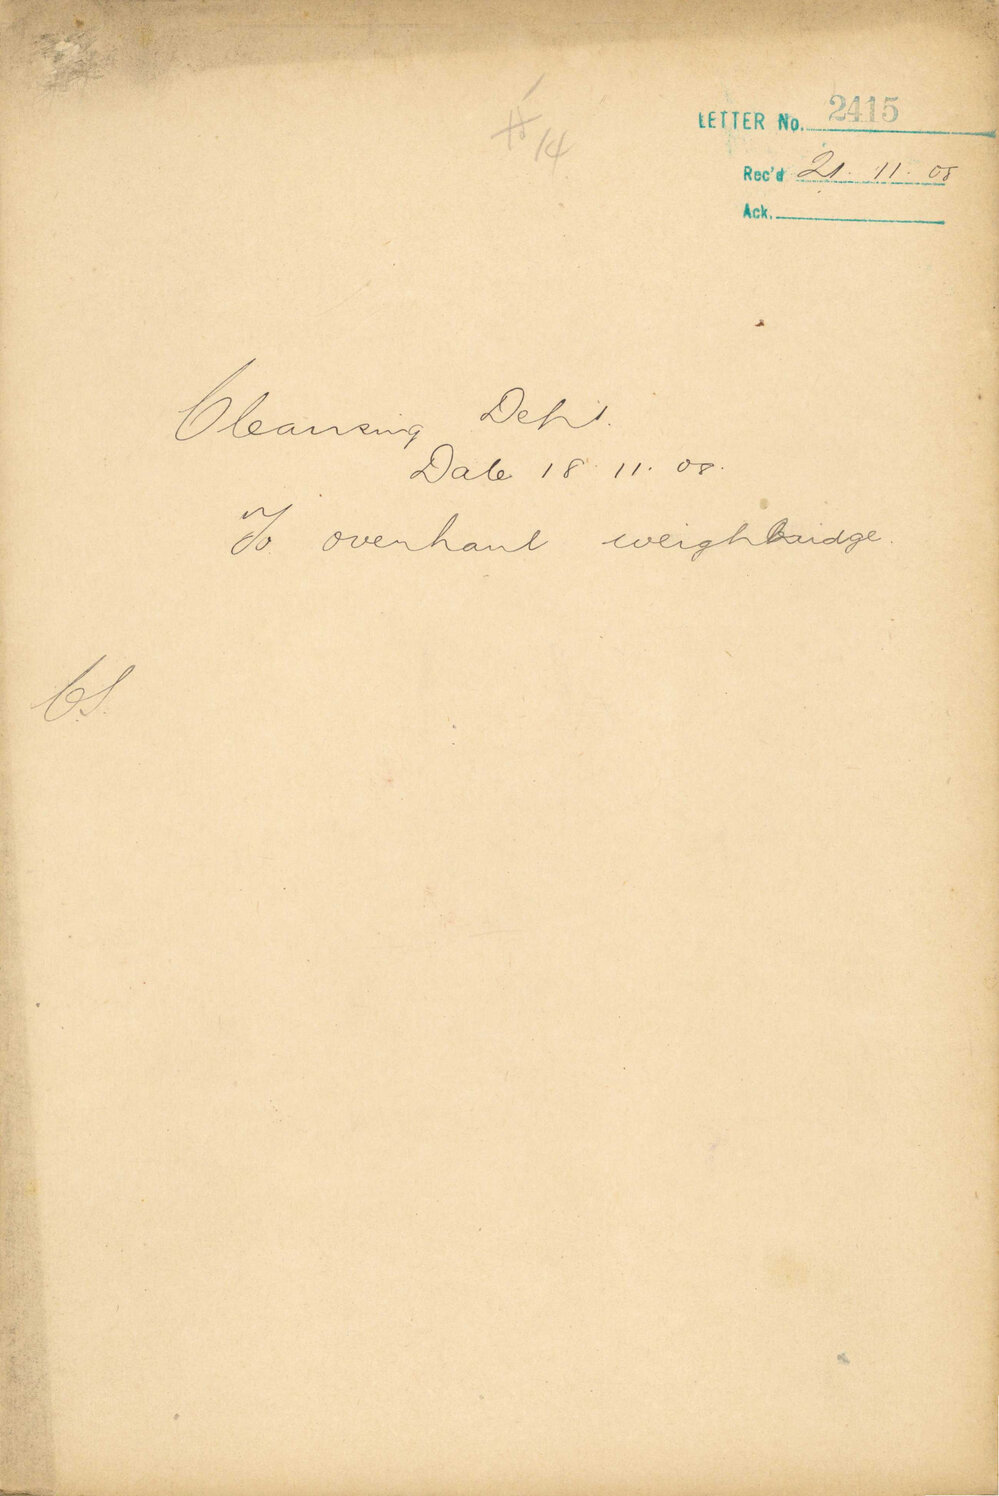 LETTER No. 2415
Rec'd 21. 11. 08
Ack.
14
Cleansing Dept.
Date 18. 11. 08.
To overhaul weighbridge.
C.S.